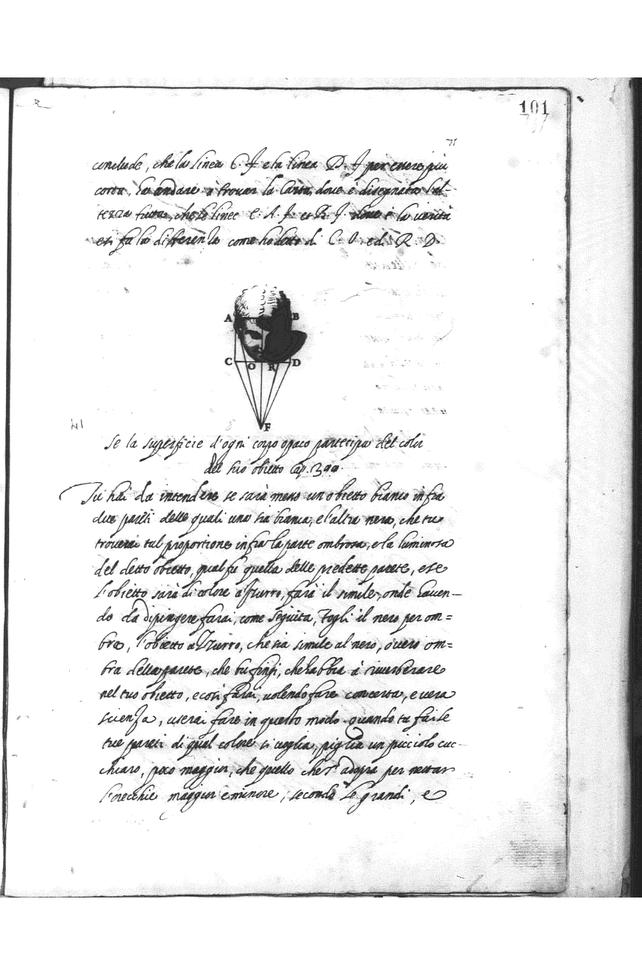 101
conclude, che la linea C. F. e la linea D. F. per essere più
corta, ha andare a trovar la carta, dove è disegnata l'al-
tezza tutta, che le linee C. A. F. et B. F. dove è la verità
et fa la differenza come ho detto di C. O. ed R. D.
A B
C O R D
F
41
Se la superficie d'ogni corpo opaco partecipa del color
del suo obietto Cap. 300.
Tu hai da intendere se sarà messo un obietto bianco infra
due pareti delle quali una sia bianca, e l'altra nera, che tu
troverai tal proportione infra la parte ombrosa, e la luminosa
del detto obietto, qual fu quella delle predette parete, e se
l'obietto sarà di colore azzurro, farà il simile, onde haven-
do da dipingere farai, come seguita, Togli il nero per om=
bra, l'obietto azzurro, che sia simile al nero, o vero om=
bra della parete, che tu fingi, che habbia à riverberare
nel tuo obietto, e così farai, volendo fare con certa, e vera
scienza, userai fare in questo modo quando tu fai le
tue pareti di qual colore si voglia, piglia un picciolo cuc-
chiaro, poco maggior, che quello che s'adopra per nettar
l'orecchie maggior e minore, secondo le grandi, e